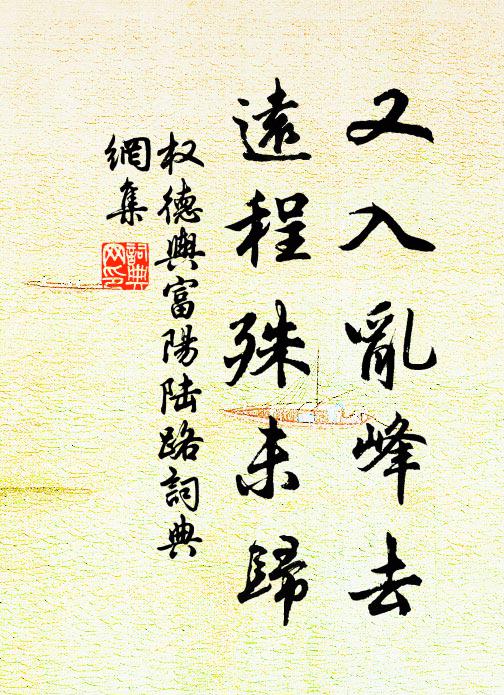 又入亂峰去
遠程殊未歸
权德輿富陽陸路詞典
網集
詞典
网印